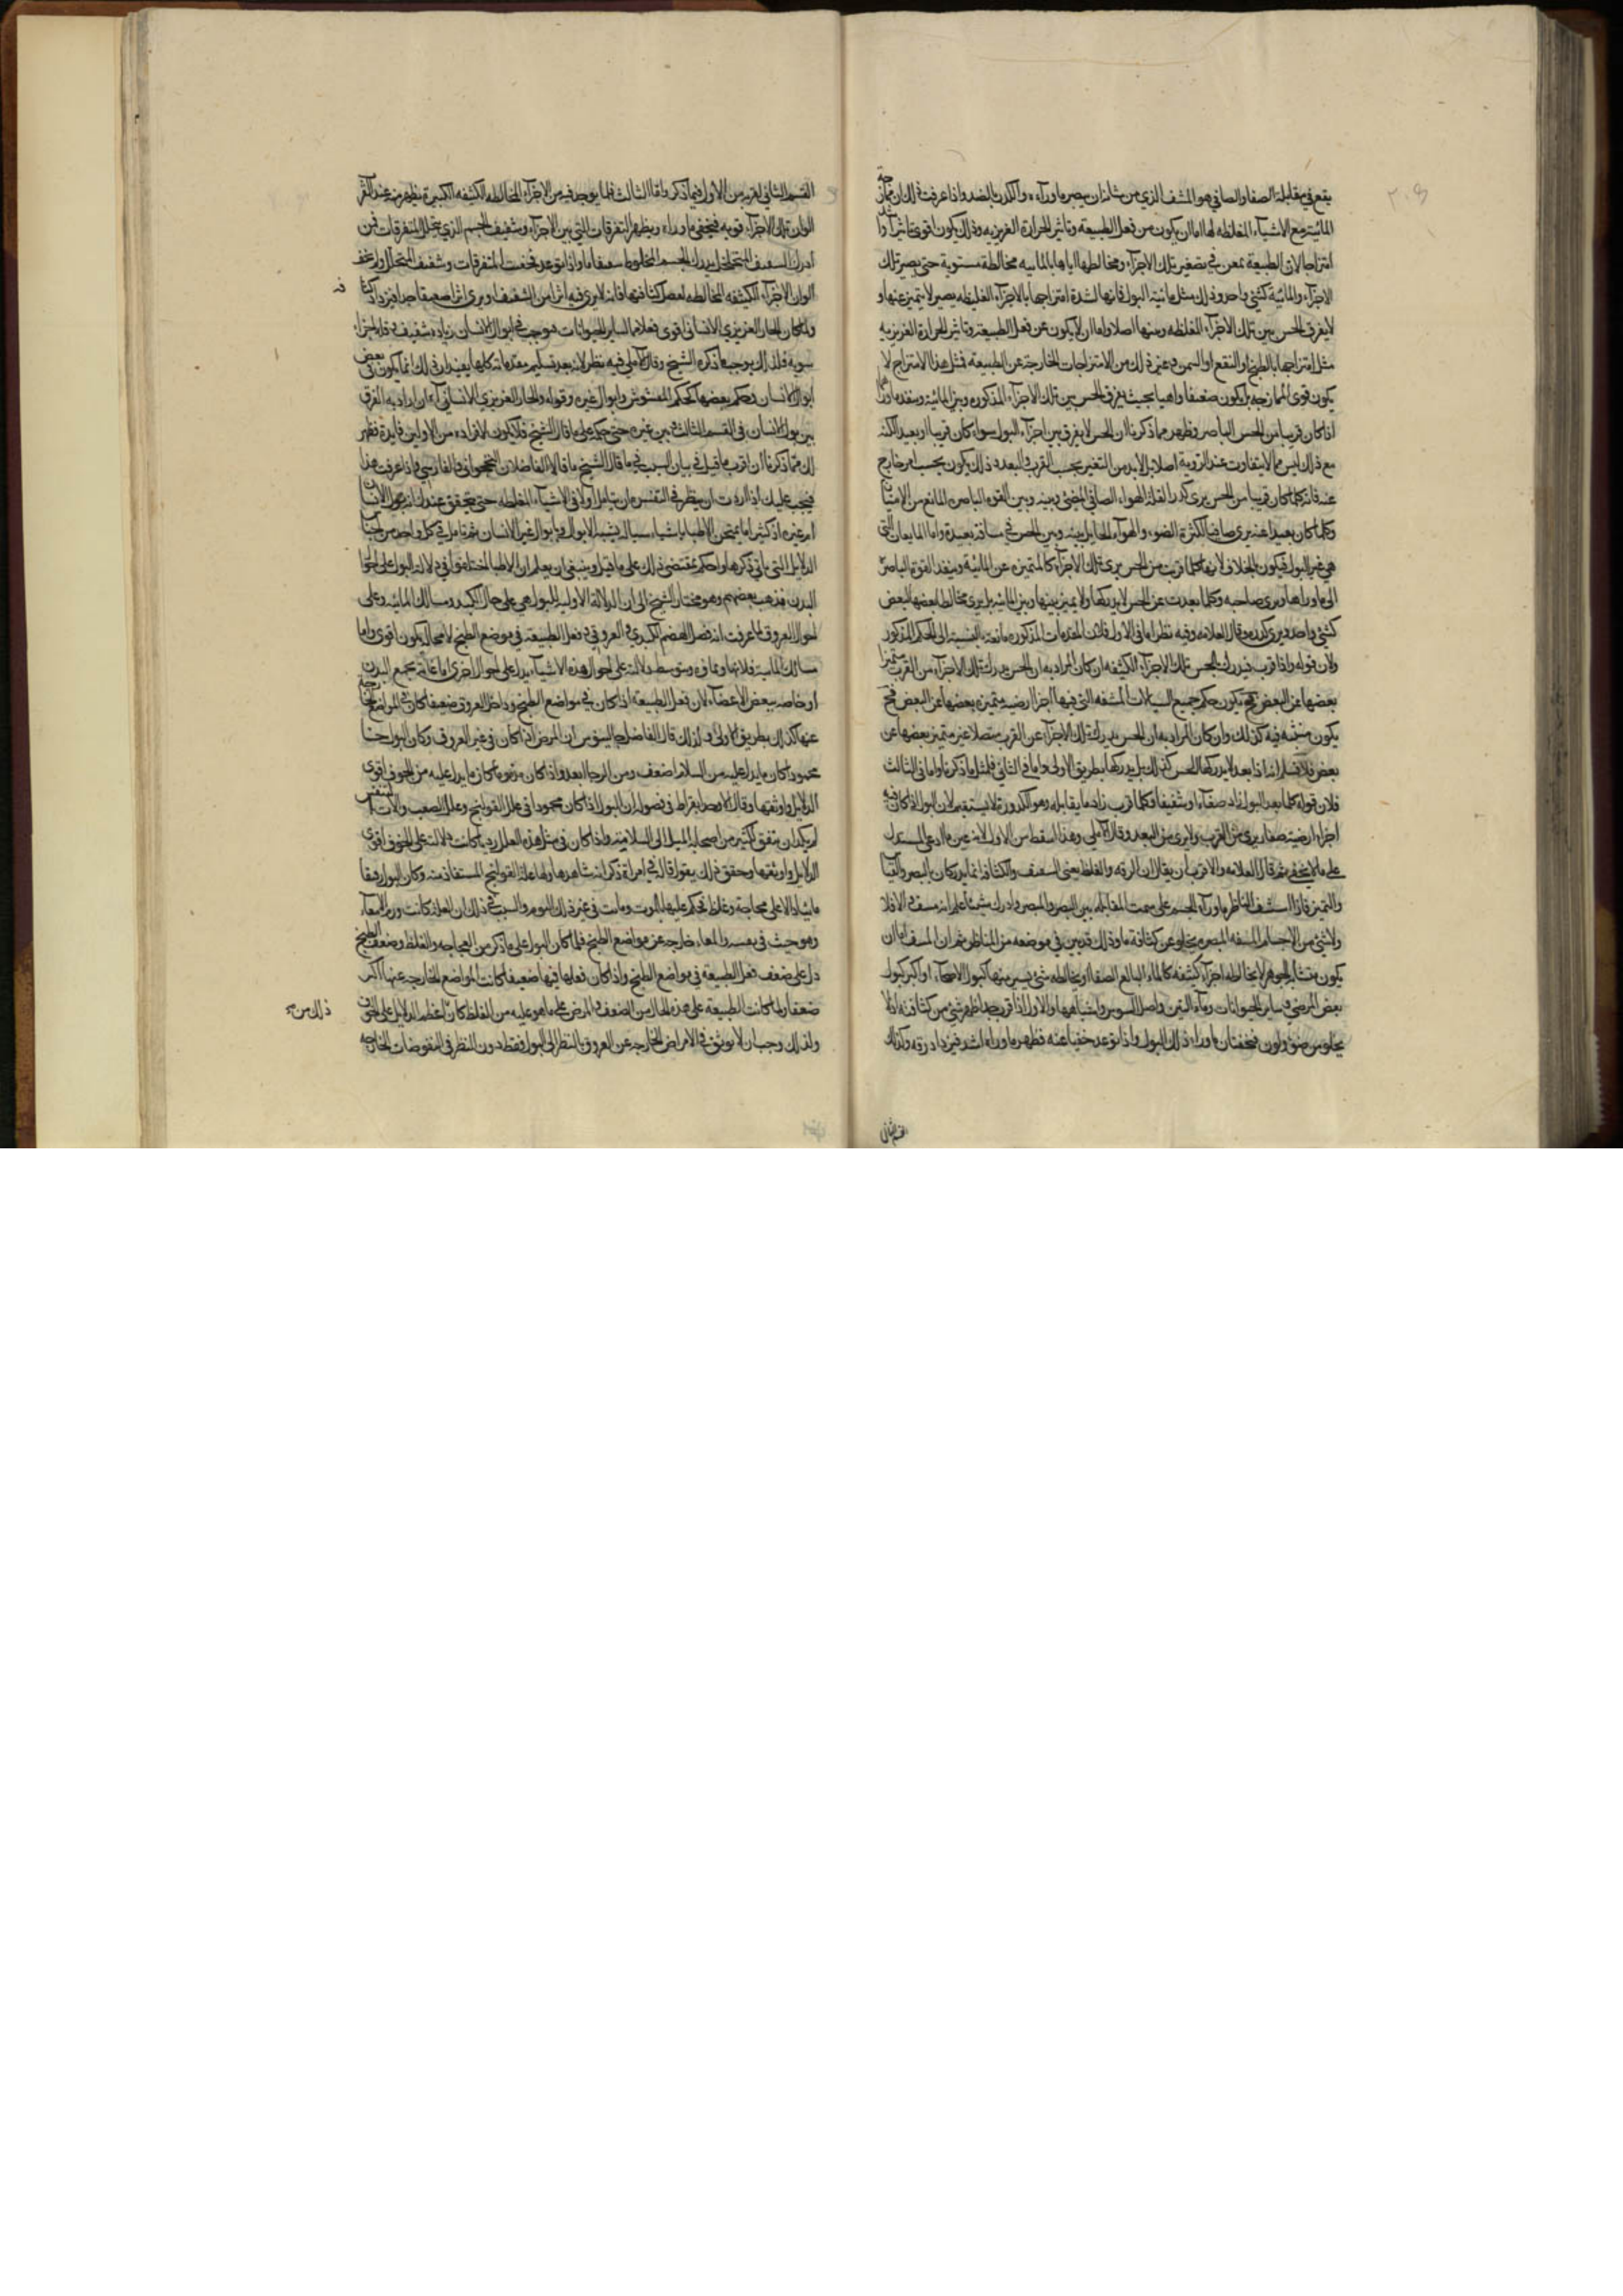 يقع في مقابلة الصفا والصافي هو المشف الذي من شانه ان يبصر ما وراءه والكدر بالضد واذا عرفت ذلك ان
المائية مع الاشياء المغلظه لها اما ان يكون من فعل الطبيعة وتاثير الحرارة الغريزيه وذلك يكون اقوى تاثيرا
امتزاجا لان الطبيعة تمعن في تصغير تلك الاجزاء ومخالطتها اياها بالمائيه مخالطة مستوية حتى يصير تلك
الاجزاء والمائية كشئ واحد وذلك مثل مائية البول فانها لشدة امتزاجها بالاجزاء الغليظه يصير لا يتميز عنها و
لا يفرق الحس بين تلك الاجزاء المغلظه وبينها اصلا واما ان لا يكون عن فعل الطبيعة وتاثير الحرارة الغريزيه
مثل امتزاجها بالطبخ او النقع او السمن وغير ذلك من الامتزاجات الخارجة عن الطبيعة فمثل هذا الامتزاج لا
يكون قوى الممازجه بل يكون ضعيفا واهيا بحيث يفرق الحس بين تلك الاجزاء المذكوره وبين المائية
اذا كان قريبا من الحس الباصر فظهر مما ذكرنا ان الحس لا يفرق بين اجزاء البول سواء كان قريبا او بعيدا لكنه
مع ذلك ليس مما لا يتفاوت عند الروية اصلا بل لابد من التغير بحسب القرب والبعد وذلك يكون بحسب امر خارج
عنه فانه كلما كان قريبا من الحس يرى كدرا لقلة الهواء الصافي المضئ وبينه وبين القوه الباصره المانع من
وكلما كان بعيدا عنه يرى صافيا لكثرة الضوء والهواء الحايل بينه وبين الحس في مسافة بعيدة واما المايعات التي
هي غير البول فيكون بالخلاف لانها كلما قربت من الحس يرى تلك الاجزاء كالمتميزه عن المائية وينفذ القوة الباصرة
الى ما وراها ويرى صاحبه وكلما بعدت عن الحس لا يدركها ولا يميز بينها وبين المائيه بل يرى مخالطا بعضها لبعض
كشئ واحد ويرى كدره وقال العلامه وفيه نظر اما في الاول فلان المقدمات المذكوره مانعة بالنسبة الى الحكم المذكور
ولان قوله واذا قرب فيدرك الحس تلك الاجزاء الكثيفه ان كان المراد به ان الحس يدرك تلك الاجزاء من القرب متميزا
بعضها عن البعض يكون حكم جميع السيالات المشفه التي فيها اجزا ارضيه متميزه بعضها عن البعض
يكون منبثه فيه كذلك وان كان المراد به ان الحس يدرك تلك الاجزاء عن القرب متصلا غير متميز بعضها عن
بعض فلا نسلم انه اذا بعد لا يدركها الحس كذلك بل يدركها بطريق الاولى واما في الثاني فلمثل ما ذكرنا واما في الثالث
فلان قوله كلما بعد البول زاد صفاءا وشفيفا وكلما قرب زاد ما يقابله وهو الكدورة لا يستقيم لان البول اذا كان فيه
اجزا ارضيه صغار يرى من القرب ولا يرى من البعد وقال الاملي وهذا اسقط من الاول لانه عين ما ادعى المستدل
على ما لا يخفى ثم قال العلامه والاقرب ان يقال ان الرقه والغلظ يعنى السفيف والكثافة انما يدركان بالبصر والقياس
والتميز فاذا استشف الناظر ما وراء الجسم على سمت المقابله بين البصر والمبصر وادرك شيئا علم انه مسف والا فلا
ولا شئ من الاجسام المسفه المبصره يخلو عن كثافة ما وذلك قد بين في موضعه من المناظر ثم ان المسف اما ان
يكون متشابه الجوهر لا يخالطه اجزاء كثيفه كالماء البالغ الصفا او يخالطه شئ يسير منها كبول الاصحاء او اكثر كبول
بعض المرضى وساير الحيوانات وماء التين واصل السوس واشباهها والاول اذا قرب جدا ظهر شئ من كثافته اذ لا
يخلو من ضوء ولون فيخفيان ما وراء ذلك البول واذا بوعد خفيا عنه فظهر ما وراءه اشد فيزداد رقه وكذلك
القسم الثاني
القسم الثاني لقربه من الاول فيما ذكر واما الثالث فلما يوجد فيه من الاجزاء المخالطه الكثيفه الكثيره يظهر منه عند
الوان تلك الاجزاء قويه فيخفي ما وراه ويظهر المتفرقات التي بين الاجزاء وشفيف الجسم الذي يتخلل المتفرقات فمن
ادرك السفيف المتخلخل يدرك الجسم المخلوط سفيفا ما واذا بوعد فخفيت المتفرقات وشفيف المتخلل ولم يخف
الوان الاجزاء الكثيفه المخالطه لفضل كثافتها فانه لا يرى فيه اثر من الشفيف ويرى اثر ضعيفا جدا فيزداد
ولما كان الحار الغريزي الانساني اقوى فعلا من الساير الحيوانات فيوجب في ابوال الانسان زياده شفيف وقلة اجزاء
سويه فلذلك يوجب ما ذكره الشيخ وقال الاملي فيه نظر لانه بعد تسليم مقدماته كلها يفيد ان ذلك انما يكون في بعض
ابوال الانسان وحكم بعضها كحكم المشوش وابوال غيره وقوله والحار الغريزي الانساني الى اخره ان اراد به الفرق
بين بول الانسان في القسم الثالث وبين غيره حتى يحكم على ما قال الشيخ فلا يكون لافراده من الاولين فايدة فظهر
لك مما ذكرنا ان اقرب ما قيل في بيان السبب في ما قال الشيخ ما قالا الفاضلان النخجواني والفارسي واذا عرفت هذا
فيجب عليك اذا اردت ان ينظر في التفسره ان يتامل اولا في الاشياء المغلطه حتى يتحقق عندك انه بول الانسان
ام غيره اذ كثيرا ما يمتحن الاطبا باشياء سياله يشبه الابوال وبابوال غير الانسان ثم تامل في كل واحد من
الدلايل التي ياتي ذكرها واحكم بمقتضى ذلك على ما قيل وينبغي ان يعلم ان الاطبا اختلفوا في دلالة البول على احوال
البدن فذهب بعضهم وهو مختار الشيخ الى ان الدلالة الاوليه للبول هي على حال الكبد ومسالك المائيه وعلى
احوال العروق لما عرفت انه فضل الهضم الكبدي والعروقي وفعل الطبيعة في موضع الطبخ لا محاله يكون اقوى واما
مسالك المائية فلانها ومما فيه وبتوسط دلالته على احوال هذه الاشياء يدل على احوال اخرى اما عامة بجميع البدن
او خاصه ببعض الاعضاء لان فعل الطبيعة اذا كان في مواضع الطبخ وداخل العروق ضعيفا كان في المواضع الخارجة
عنها كذلك بطريق الاولى ولذلك قال الفاضل جالينوس ان المرض اذا كان في غير العروق وكان البول
محمودا كان ما يدل عليه من السلامه اضعف ومن الرجا ابعد واذا كان مذموما كان ما يدل عليه من الخوف اقوى
الدلايل واوثقها وقال الاوحد ابقراط في فصوله ان البول اذا كان محمودا في علل القولنج وعلل العصب والات التنفس
لم يكد ان يتفق لكثير من اصحابه الميل الى السلامة واذا كان في مثل هذه العلل رديا كانت دلالته على الخوف اقوى
الدلايل واوثقها وحقق ذلك بقوله قال في امراة ذكر انه شاهدها ولها علة القولنج المستعاذ منه وكان البول رقيقا
مائيا والاعلى مجاجه وغلظ فحكم عليها بالموت وماتت في غير ذلك اليوم والسبب في ذلك ان العلة كانت ورم الامعاء
وهو حيث في نفسه والمعاء خارجه عن مواضع الطبخ فلما كان البول على ما ذكر من الفجاجه والغلظ وضعف الطبخ
دل على ضعف فعل الطبيعة في مواضع الطبخ واذا كان فعلها فيها ضعيفا كانت المواضع الخارجه عنها اكثر
ضعفا ولما كانت الطبيعة على هذه الحال من الضعف والمرض على ما هو عليه من الغلظ كان اعظم الدلايل على الخوف
ذلك من
ولذلك وجب ان لا يوثق في الامراض الخارجه عن العروق بالنظر الى البول فقط دون النظر في النفوضات الخارجه